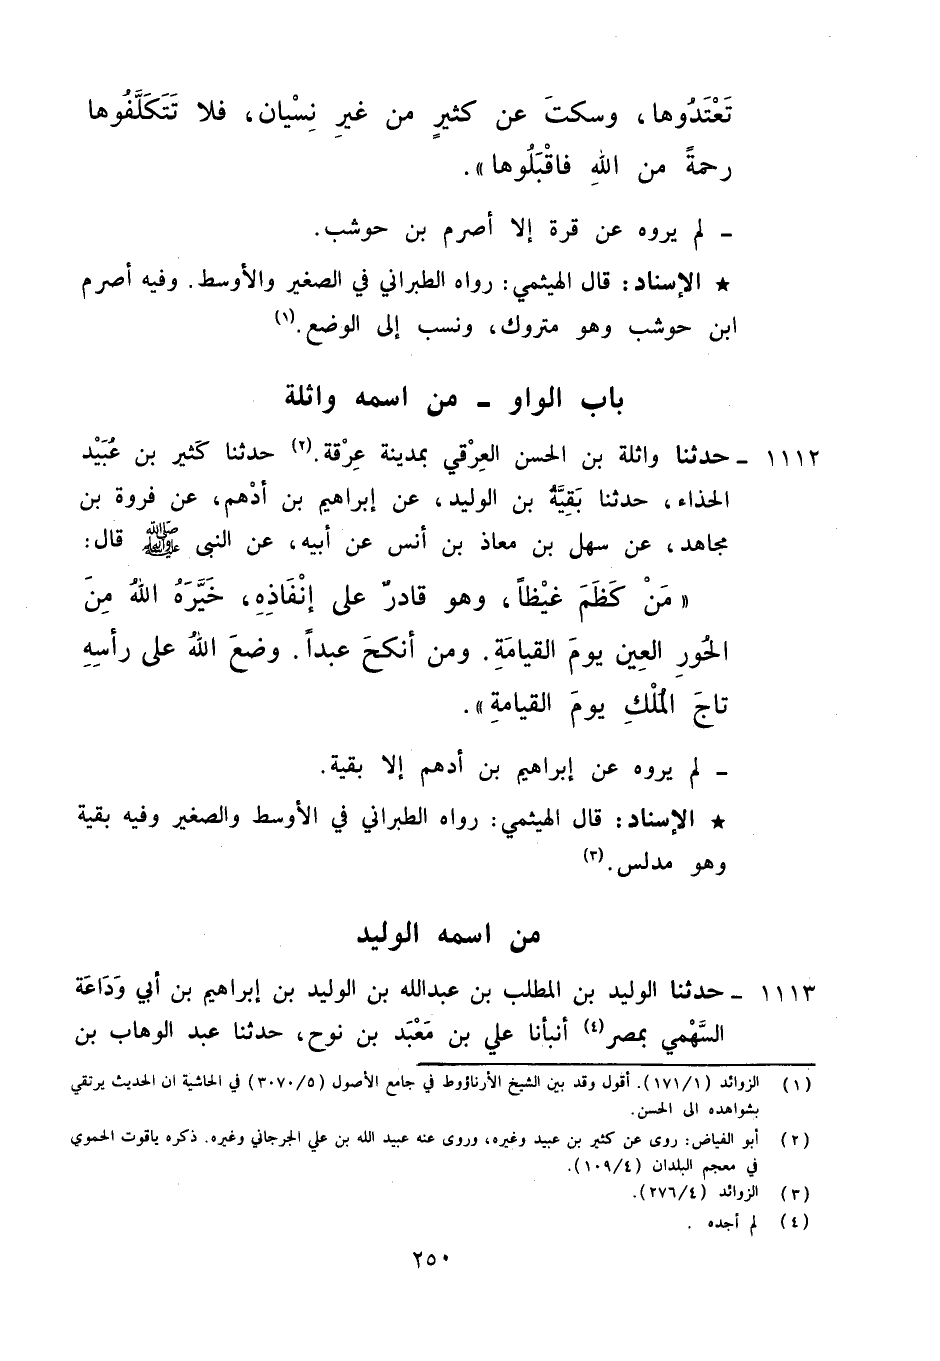 تَعْتَدُوها، وسكتَ عن كثيرٍ من غيرِ نِسْيان، فلا تَتَكَلَّفُوها
رحمةً من اللهِ فاقْبَلُوها».
ـ لم يروه عن قرة إلا أصرم بن حوشب.
★ الإسناد: قال الهيثمي: رواه الطبراني في الصغير والأوسط. وفيه أصرم
ابن حوشب وهو متروك، ونسب إلى الوضع.(١)
باب الواو ـ من اسمه واثلة
١١١٢ ـ حدثنا واثلة بن الحسن العِرْقي بمدينة عِرْقة.(٢) حدثنا كَثير بن عُبَيْد
الحذاء، حدثنا بَقِيَّةُ بن الوليد، عن إبراهيم بن أدْهم، عن فروة بن
مجاهد، عن سهل بن معاذ بن أنس عن أبيه، عن النبي ﷺ قال:
« مَنْ كَظَمَ غيْظاً، وهو قادرٌ على إنْفَاذِهِ، خَيَّرَهُ اللهُ مِنَ
الحُورِ العِين يومَ القيامَةِ. ومن أنكحَ عبداً. وضعَ اللهُ على رأسِهِ
تاجَ المُلْكِ يومَ القيامةِ».
ـ لم يروه عن إبراهيم بن أدهم إلا بقية.
★ الإسناد: قال الهيثمي: رواه الطبراني في الأوسط والصغير وفيه بقية
وهو مدلس.(٣)
من اسمه الوليد
١١١٣ ـ حدثنا الوليد بن المطلب بن عبدالله بن الوليد بن إبراهيم بن أبي وَدَاعَة
السَّهْمي بمصر(٤) أنبأنا علي بن مَعْبَد بن نوح، حدثنا عبد الوهاب بن
(١) الزوائد (١٧١/١). أقول وقد بين الشيخ الأرناؤوط في جامع الأصول (٣٠٧٠/٥) في الحاشية ان الحديث يرتقي
بشواهده الى الحسن.
(٢) أبو الفياض: روى عن كثير بن عبيد وغيره، وروى عنه عبيد الله بن علي الجرجاني وغيره. ذكره ياقوت الحموي
في معجم البلدان (١٠٩/٤).
(٣) الزوائد (٢٧٦/٤).
(٤) لم أجده .
٢٥٠